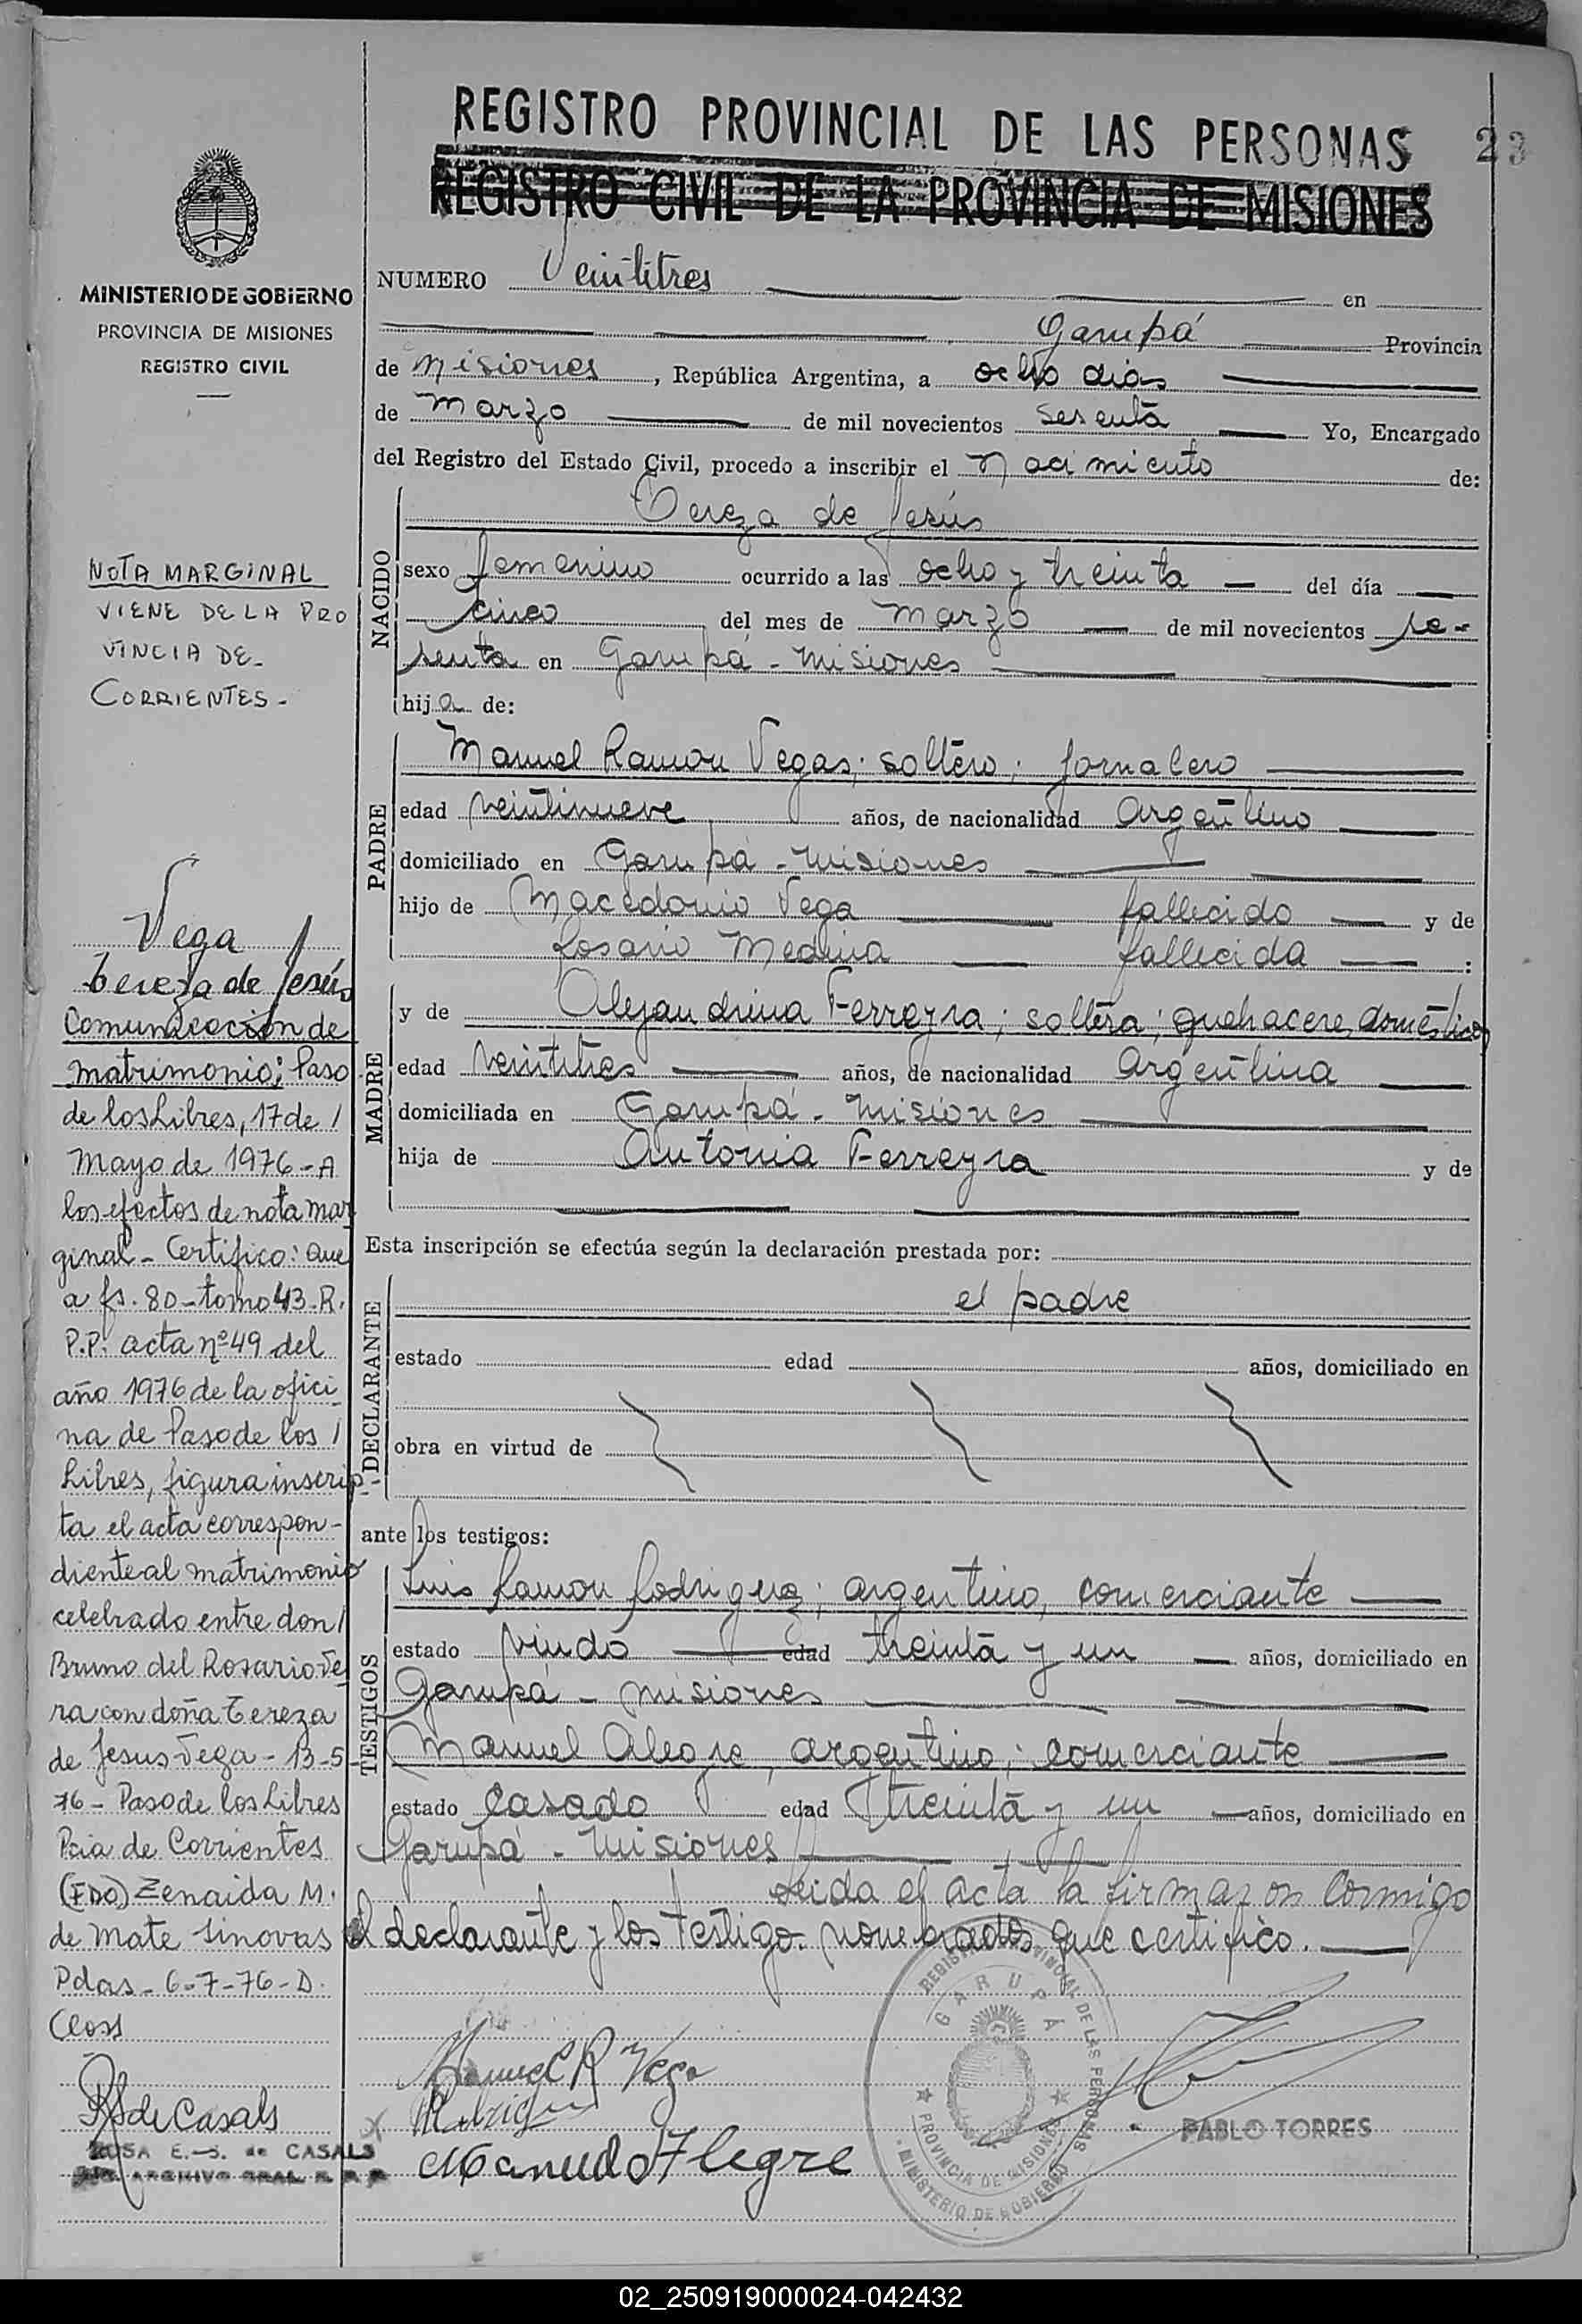 REGISTRO PROVINCIAL DE LAS PERSONAS 23
REGISTRO CIVIL DE LA PROVINCIA DE MISIONES
MINISTERIO DE GOBIERNO
PROVINCIA DE MISIONES
REGISTRO CIVIL
NOTA MARGINAL
VIENE DE LA PRO
VINCIA DE-
CORRIENTES-
Vega
Tereza de Jesús
Comunicación de
matrimonio; Paso
de los Libres, 17 de /
Mayo de 1976-A
los efectos de nota mar
ginal- Certifico: que
a fs. 80-tomo 43-R.
P.P. acta nº 49 del
año 1976 de la ofici
na de Paso de los /
Libres, figura inscrip-
ta el acta correspon-
diente al matrimonio
celebrado entre don /
Bruno del Rosario Ve
ra con doña Tereza
de Jesus Vega - 13-5-
76- Paso de los Libres
Pcia de Corrientes
(FDO) Zenaida M.
de Mate Sinovas
Pdas- 6-7-76-D.
Closs
RSdeCasals
ROSA E. S. de CASALS
ARCHIVO GRAL R. P. P
NUMERO Veintitres en
Garupá Provincia
de Misiones, República Argentina, a ocho dias
de Marzo de mil novecientos Sesenta Yo, Encargado
del Registro del Estado Civil, procedo a inscribir el Nacimiento de:
NACIDO
Tereza de Jesús
sexo femenino ocurrido a las ocho y treinta del día
cinco del mes de Marzo de mil novecientos se-
senta en Garupá - Misiones
hija de:
PADRE
Manuel Ramon Vegas; soltero; jornalero
edad veintinueve años, de nacionalidad Argentino
domiciliado en Garupá - Misiones
hijo de Macedonio Vega fallecido y de
Rosario Medina fallecida :
MADRE
y de Alejandrina Ferreyra; soltera; quehacere domésticos
edad veintitres años, de nacionalidad Argentina
domiciliada en Garupá - Misiones
hija de Antonia Ferreyra y de
Esta inscripción se efectúa según la declaración prestada por:
DECLARANTE
el padre
estado edad años, domiciliado en
obra en virtud de
ante los testigos:
TESTIGOS
Luis Ramon Rodriguez; argentino, comerciante
estado viudo edad treinta y un años, domiciliado en
Garupá - Misiones
Manuel Alegre, argentino; comerciante
estado Casado edad treinta y un años, domiciliado en
Garupá - Misiones
Leida el acta la firmaron conmigo
el declarante y los testigo. nombrados que certifico.
Manuel R Vega
Rodriguez
Manuel Alegre
REGISTRO PROVINCIAL DE LAS PERSONAS
GARUPÁ
PROVINCIA DE MISIONES
MINISTERIO DE GOBIERNO
PABLO TORRES
02_250919000024-042432